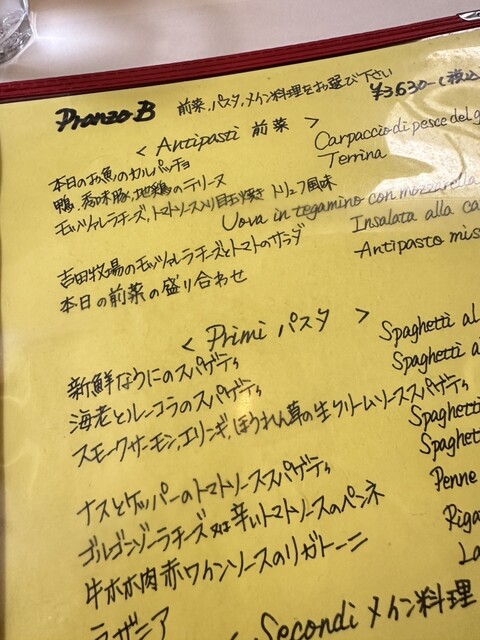 Pranzo B 前菜、パスタ、メイン料理をお選び下さい ¥3630-(税込
< Antipasti 前菜 >
本日のお魚のカルパッチョ Carpaccio di pesce del g
鴨、香味豚、地鶏のテリーヌ Terrina
モッツァレラチーズ、トマトソース入り目玉焼き トリュフ風味
Uova in tegamino con mozzarella
吉田牧場のモッツァレラチーズとトマトのサラダ Insalata alla ca
本日の前菜の盛り合わせ Antipasto mis
< Primi パスタ >
新鮮なうにのスパゲティ Spaghetti al
海老とルーコラのスパゲティ Spaghetti al
スモークサーモン、エリンギ、ほうれん草の生クリームソーススパゲティ
Spaghetti
ナスとケッパーのトマトソーススパゲティ Spaghetti
ゴルゴンゾーラチーズ又は辛いトマトソースのペンネ Penne
牛ホホ肉赤ワインソースのリガトーニ Riga
ラザニア La
Secondi メイン料理